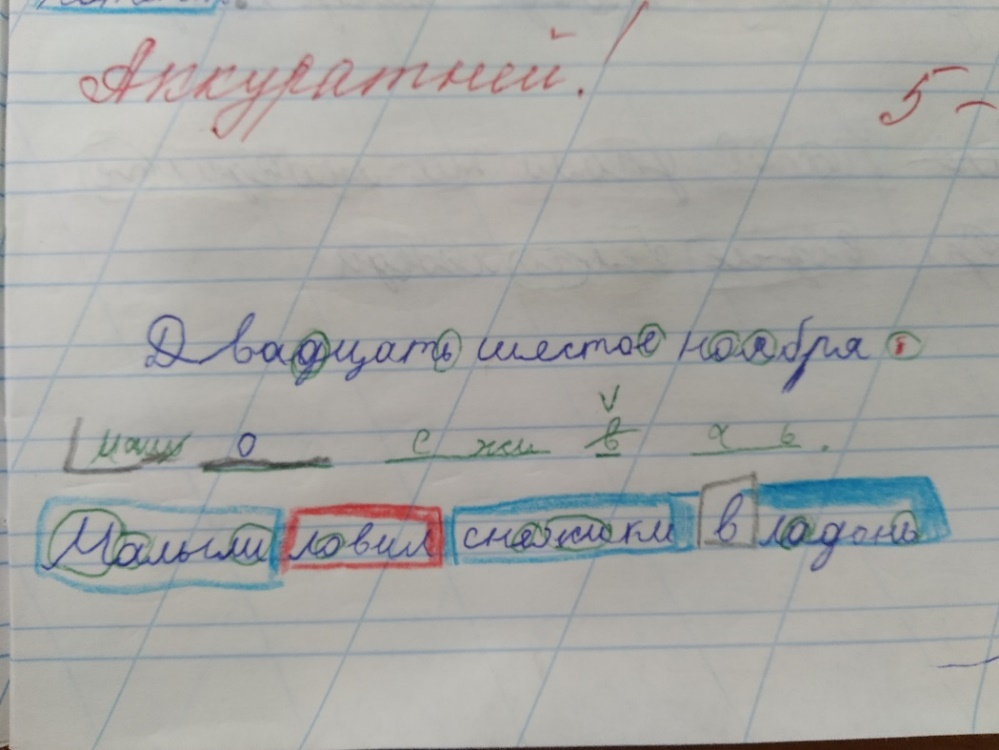 Аккуратней! 5 -
Двадцать шестое ноября.
о с жи в ь.
Малыш ловил снежики в ладонь